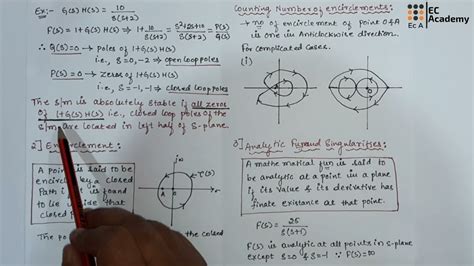 Ex:- G(s) H(s) = 10 / s(s+2)
F(s) = 1 + G(s) H(s) = 1 + 10 / s(s+2) = s²+2s+10 / s(s+2) = P(s) / Q(s)
∴ Q(s) = 0 → poles of 1+G(s) H(s)
i.e., s = 0, -2 → open loop poles
P(s) = 0 → zeros of 1+G(s) H(s)
i.e., s = -1, -1 → closed loop poles
The s/m is absolutely stable if all zeros
of 1+G(s) H(s) i.e., closed loop poles of the
s/m are located in left half of s-plane.
2] Encirclement:
A point is said to be
encircled by a closed
path if it is found
to lie inside that
closed
The po
the closed
jω
τ(s)
Counting Number of encirclements:
→ no of encirclement of point O & A
is one in Anticlockwise direction.
For complicated Cases:
(i)
3] Analytic Fun and Singularities:
A mathematical fun is said to
be analytic at a point in a plane
if its value & its derivative has
finite existance at that point.
F(s) = 25 / s(s+1)
F(s) is analytic at all points in s-plane
except s = 0 & s = -1 → ∞
EC
Academy
Ec A